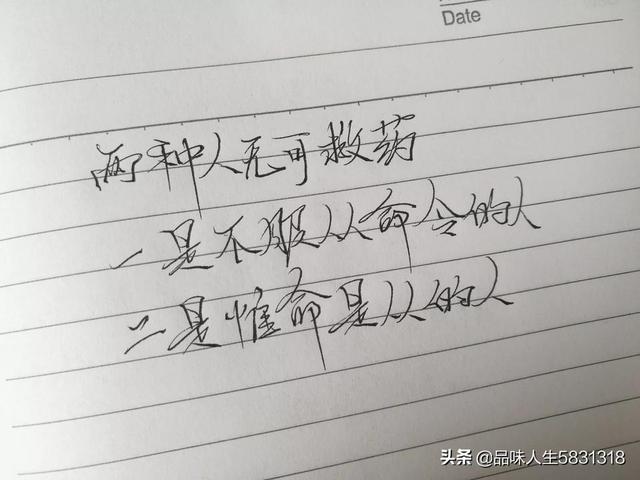 Date
两种人无可救药
一是不服从命令的人
二是惟命是从的人
头条 @品味人生5831318